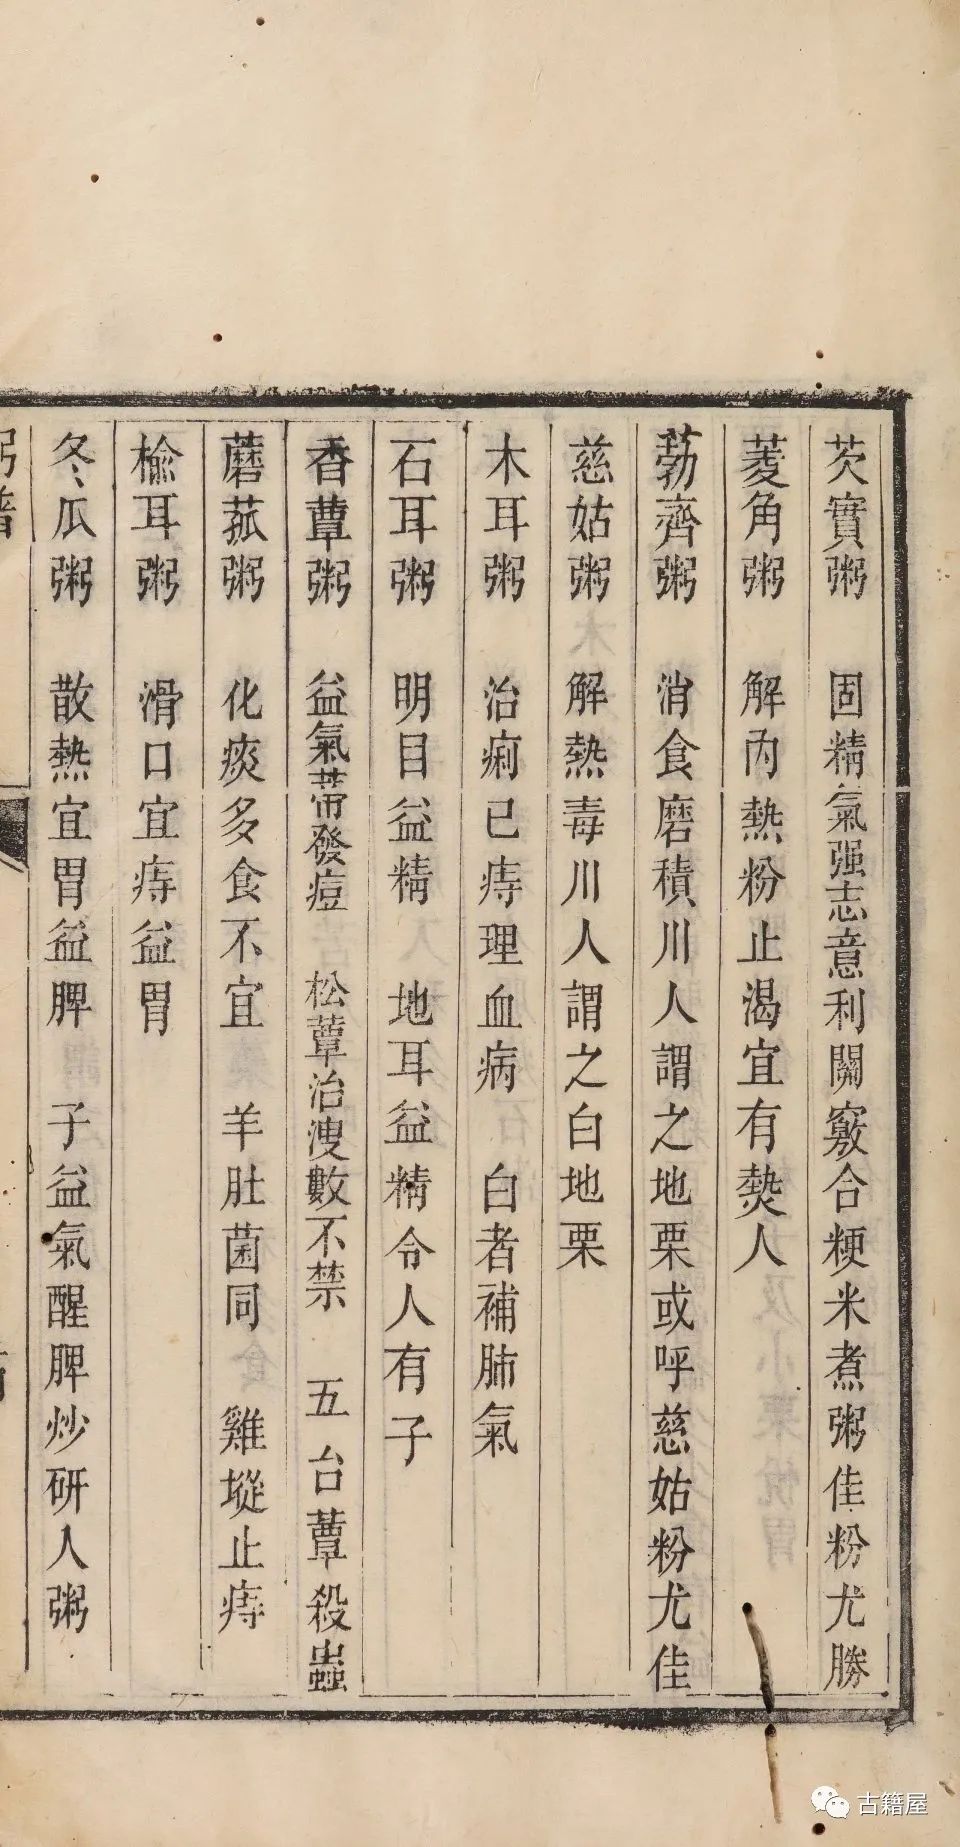 芡實粥　固精氣强志意利關竅合粳米煮粥佳粉尤勝
菱角粥　解內熱粉止渴宜有熱人
荸薺粥　消食磨積川人謂之地栗或呼慈姑粉尤佳
慈姑粥　解熱毒川人謂之白地栗
木耳粥　治痢已痔理血病　白者補肺氣
石耳粥　明目益精　地耳益精令人有子
香蕈粥　益氣蒂發痘　松蕈治溲數不禁　五台蕈殺蟲
蘑菰粥　化痰多食不宜　羊肚菌同　雞㙡止痔
榆耳粥　滑口宜痔益胃
冬瓜粥　散熱宜胃益脾　子益氣醒脾炒研人粥
粥譜
古籍屋